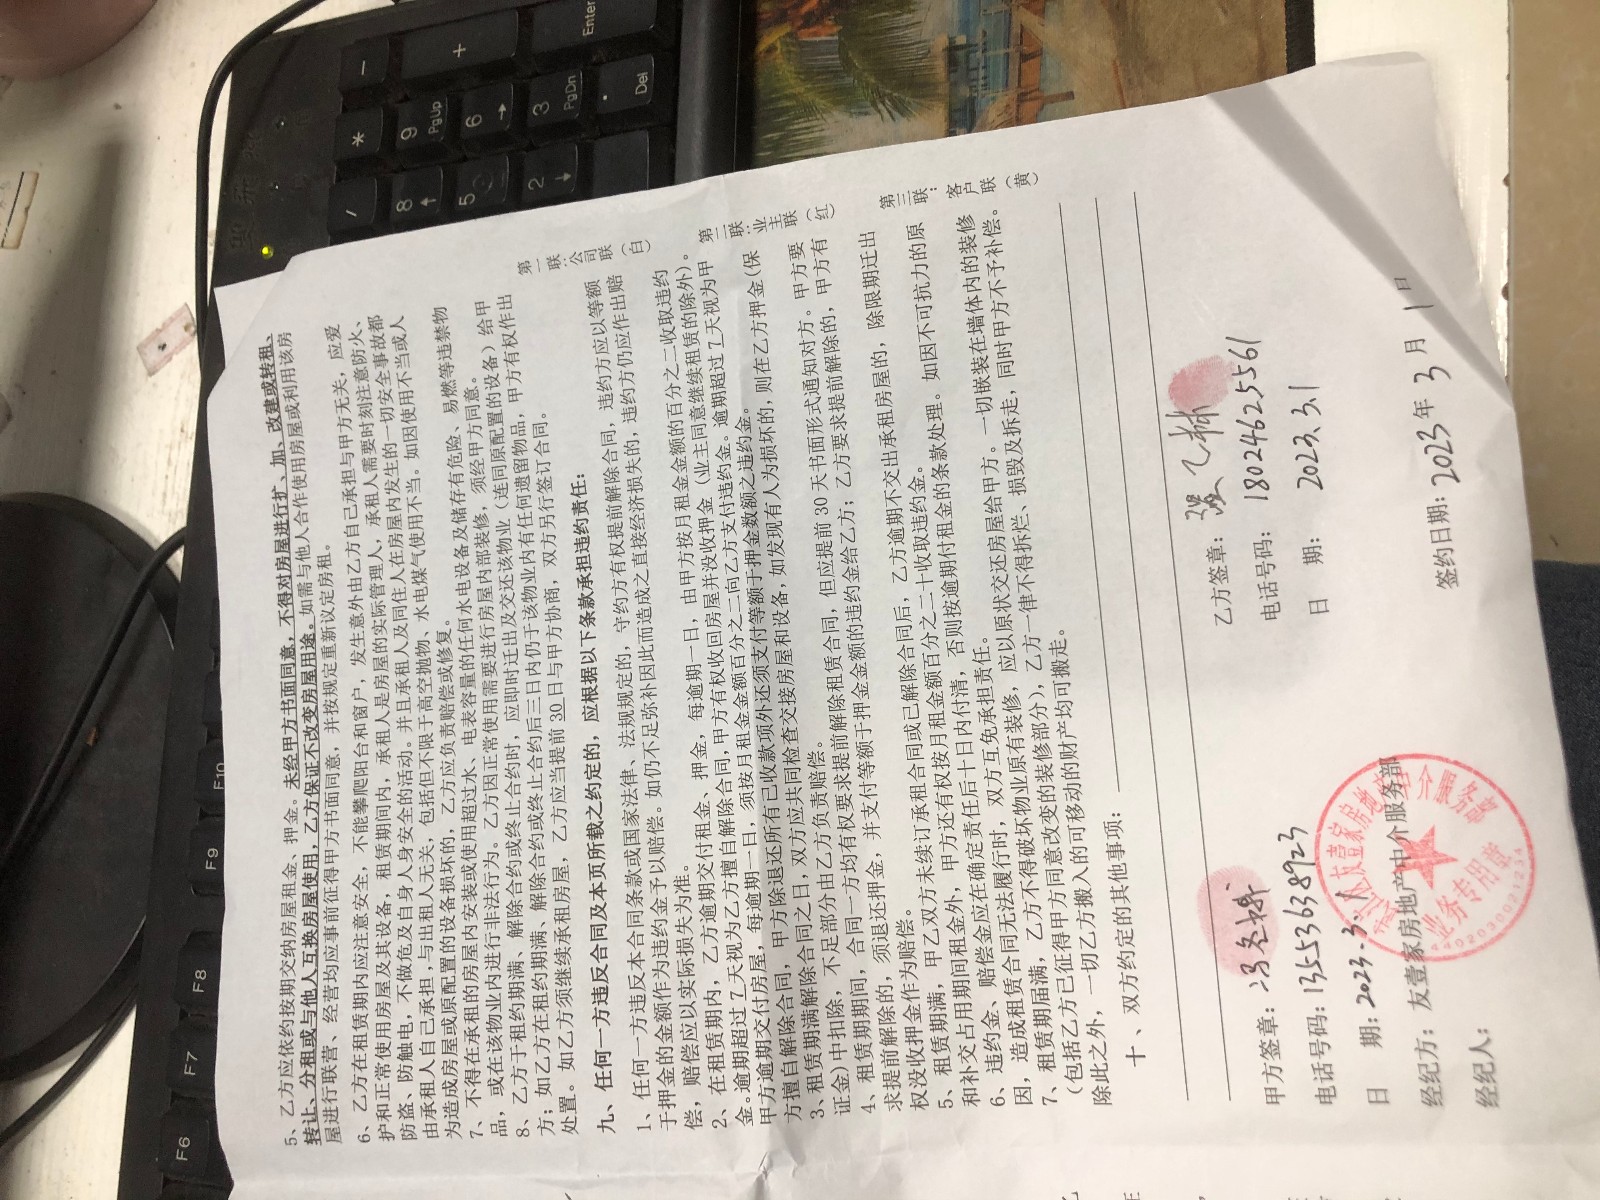 5、乙方应依约按期交纳房屋租金、押金。未经甲方书面同意，不得对房屋进行扩、加、改建或转租、
转让、分租或与他人互换房屋使用，乙方保证不改变房屋用途。如需与他人合作使用房屋或利用该房
屋进行联营、经营均应事前征得甲方书面同意，并按规定重新议定房租。
6、乙方在租赁期内应注意安全，不能攀爬阳台和窗户，发生意外由乙方自己承担与甲方无关，应爱
护和正常使用房屋及其设备，租赁期间内，承租人是房屋的实际管理人，承租人需要时刻注意防火、
防盗、防触电，不做危及自身人身安全的活动。并且承租人及同住人在房屋内发生的一切安全事故都
由承租人自己承担，与出租人无关，包括但不限于高空抛物、水电煤气使用不当。如因使用不当或人
为造成房屋或原配置的设备损坏的，乙方应负责赔偿或修复。
7、不得在承租的房屋内安装或使用超过水、电表容量的任何水电设备及储存有危险、易燃等违禁物
品，或在该物业内进行非法行为。乙方因正常使用需要进行房屋内部装修，须经甲方同意。
8、乙方于租约期满、解除合约或终止合约时，应即时迁出及交还该物业（连同原配置的设备）给甲
方；如乙方在租约期满、解除合约或终止合约后三日内仍于该物业内有任何遗留物品，甲方有权作出
处置。如乙方须继续承租房屋，乙方应当提前 30 日与甲方协商，双方另行签订合同。
九、任何一方违反合同及本页所载之约定的，应根据以下条款承担违约责任：
1、任何一方违反本合同条款或国家法律、法规规定的，守约方有权提前解除合同，违约方应以等额
于押金的金额作为违约金予以赔偿。如仍不足弥补因此而造成之直接经济损失的，违约方仍应作出赔
偿，赔偿应以实际损失为准。
2、在租赁期内，乙方逾期交付租金、押金，每逾期一日，由甲方按月租金金额的百分之二收取违约
金。逾期超过 7 天视为乙方擅自解除合同，甲方有权收回房屋并没收押金（业主同意继续租赁的除外）。
甲方逾期交付房屋，每逾期一日，须按月租金金额百分之二向乙方支付违约金。逾期超过 7 天视为甲
方擅自解除合同，甲方除退还所有已收款项外还须支付等额于押金数额之违约金。
3、租赁期满解除合同之日，双方应共同检查交接房屋和设备，如发现有人为损坏的，则在乙方押金（保
证金）中扣除，不足部分由乙方负责赔偿。
4、租赁期期间，合同一方均有权要求提前解除租赁合同，但应提前 30 天书面形式通知对方。甲方要
求提前解除的，须退还押金，并支付等额于押金金额的违约金给乙方；乙方要求提前解除的，甲方有
权没收押金作为赔偿。
5、租赁期满，甲乙双方未续订承租合同或已解除合同后，乙方逾期不交出承租房屋的，除限期迁出
和补交占用期间租金外，甲方还有权按月租金额百分之二十收取违约金。
6、违约金、赔偿金应在确定责任后十日内付清，否则按逾期付租金的条款处理。如因不可抗力的原
因，造成租赁合同无法履行时，双方互免承担责任。
7、租赁期届满，乙方不得破坏物业原有装修，应以原状交还房屋给甲方。一切嵌装在墙体内的装修
（包括乙方已征得甲方同意改变的装修部分），乙方一律不得拆烂、损毁及拆走，同时甲方不予补偿。
除此之外，一切乙方搬入的可移动的财产均可搬走。
十、双方约定的其他事项：
第一联：公司联（白）
第二联：业主联（红）
第三联：客户联（黄）
甲方签章：
乙方签章：
电话号码：13553638923
电话号码：18024625561
日 期：2023.3.1
日 期：2023.3.1
经纪方：友壹家房地产中介服务部
签约日期：2023 年 3 月 1 日
经纪人：
友壹家房地产中介服务部
业务专用章
F6
F7
F8
F9
F10
/
*
-
8
9
PgUp
+
5
6
2
3
PgDn
Enter
.
Del